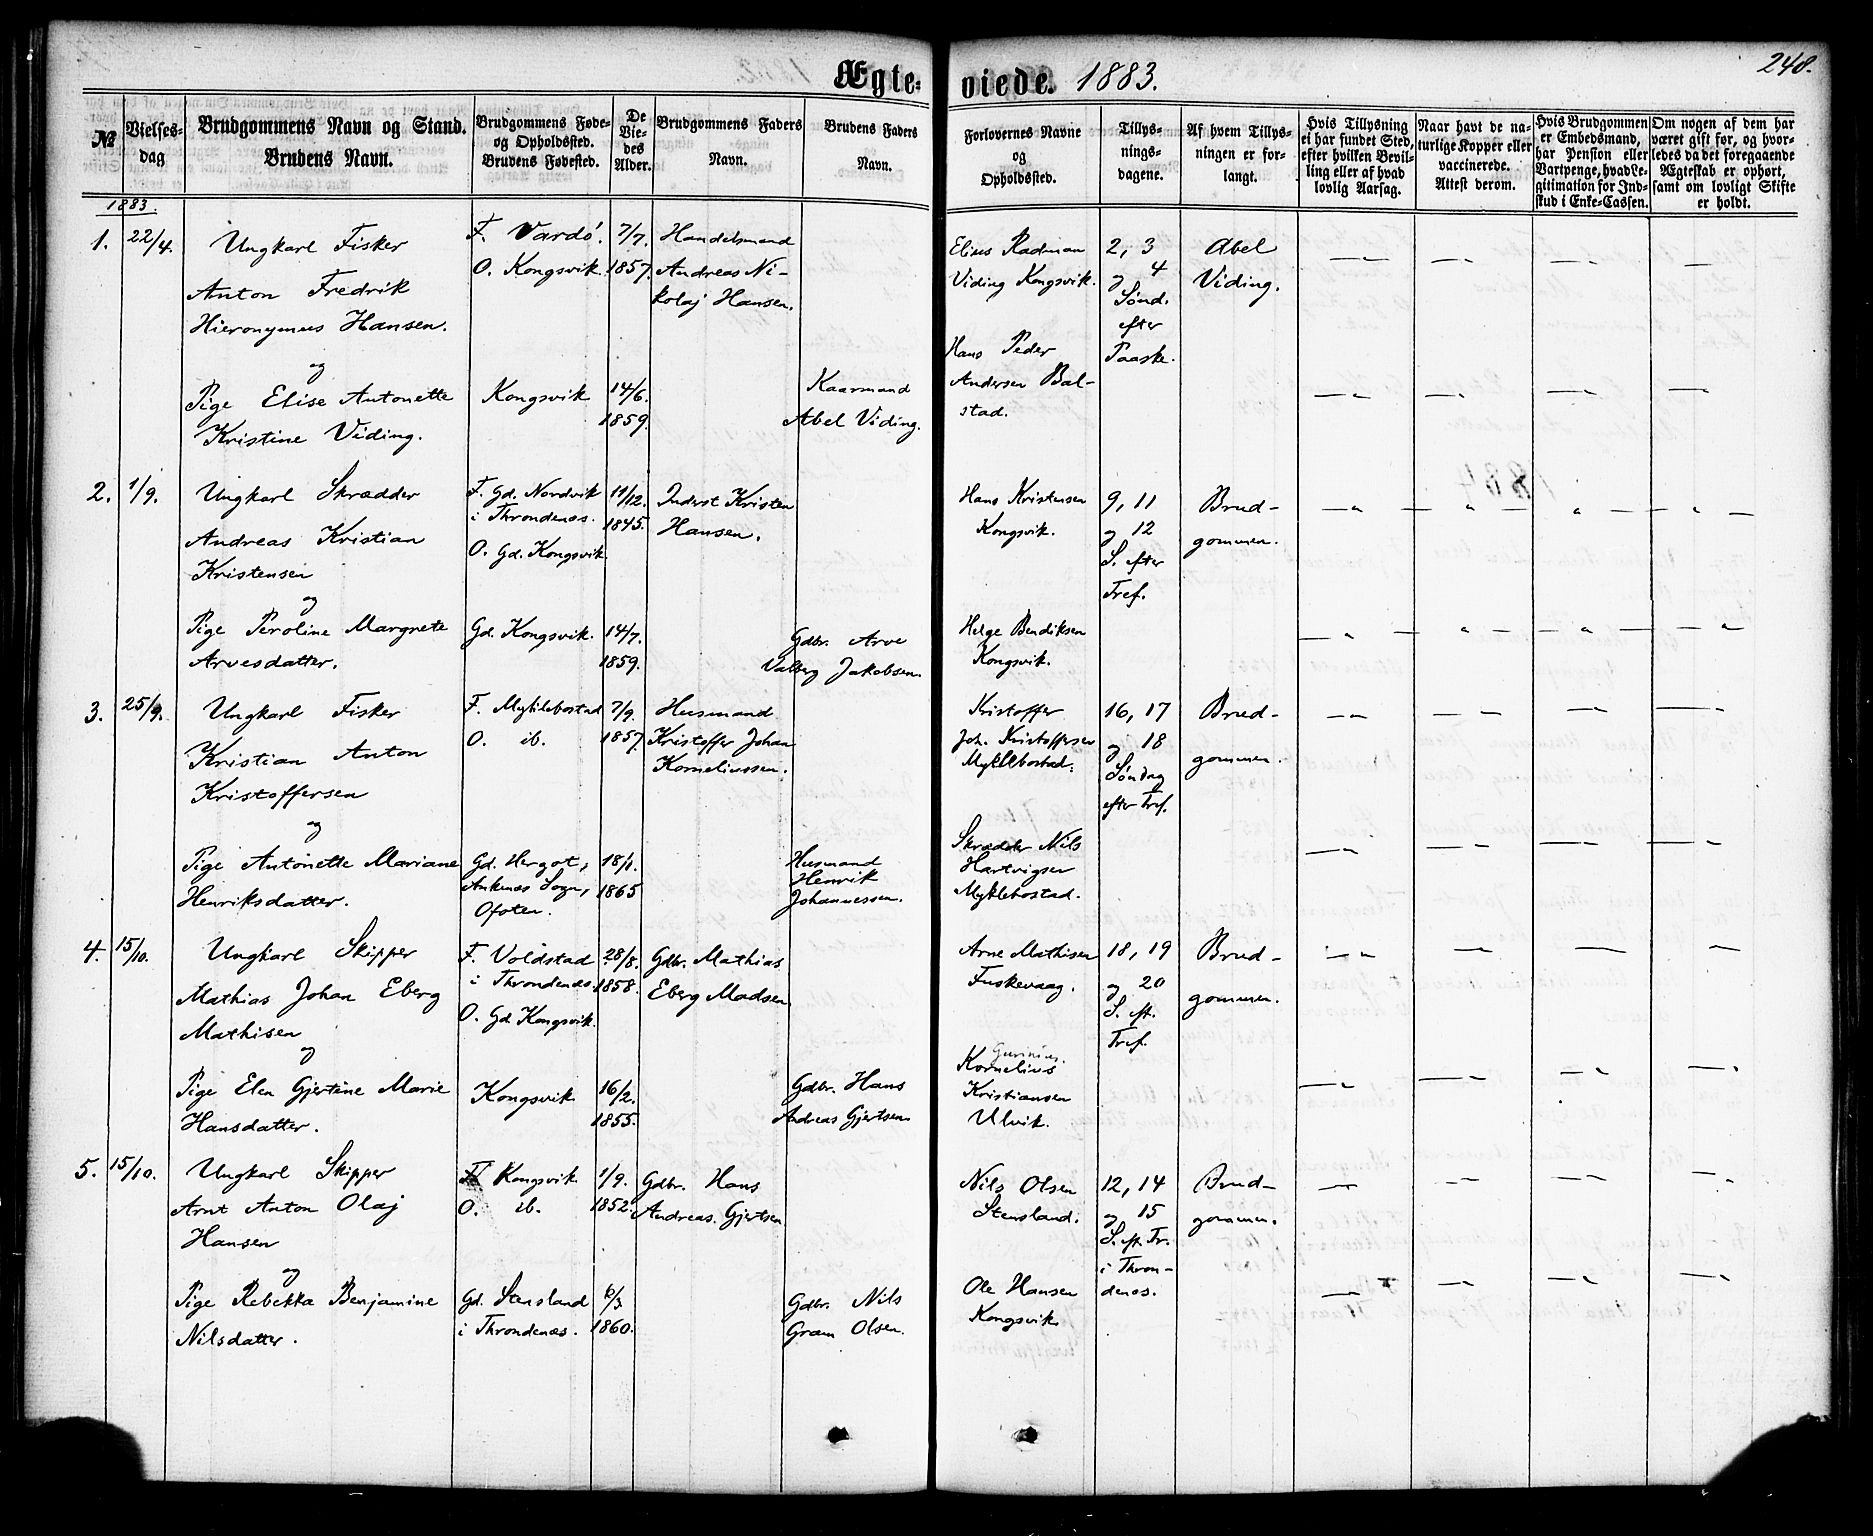 Ægte- viede. 1883.
248.
№
Vielses-
dag
Brudgommens Navn og Stand.
Brudens Navn.
Brudgommens Føde-
og Opholdssted.
Brudens Fødested.
De
Vie-
des
Alder.
Brudgommens Faders
Navn.
Brudens Faders
Navn.
Forlovernes Navne
og
Opholdssted.
Tillys-
nings-
dagene.
Af hvem Tillys-
ningen er for-
langt.
Hvis Tillysning
ei har fundet Sted,
efter hvilken Bevil-
ling eller af hvad
lovlig Aarsag.
Naar havt de na-
turlige Kopper eller
vaccinerede.
Attest derom.
Hvis Brudgommen
er Embedsmand,
har Pension eller
Vartpenge, hvad Le-
gitimation for Ind-
skud i Enke-Cassen.
Om nogen af dem har
været gift før, og hvor-
ledes da det foregaaende
Ægteskab er ophørt,
samt om lovligt Skifte
er holdt.
1883.
1.
22/4.
Ungkarl Fisker
Anton Fredrik
Hieronymus Hansen.
og
Pige Elise Antonette
Kristine Viding.
F. Vardø.
O. Kongsvik.
Kongsvik
7/7.
1857.
14/6.
1859.
Handelsmand
Andreas Ni-
kolaj Hansen.
Kaarmand
Abel Viding.
Elius Radman
Viding Kongsvik.
Hans Peder
Andersen Bal-
stad.
2, 3
og 4
Sønd.
efter
Paaske.
Abel
Viding.
2.
1/9.
Ungkarl Skrædder
Andreas Kristian
Kristensen
og
Pige Peroline Margrete
Arvesdatter.
F. Gd. Nordvik
i Throndenæs.
O. Gd. Kongsvik
Gd. Kongsvik.
11/12.
1845.
14/7.
1859.
Inderst Kristen
Hansen.
Gdbr. Arve
Valberg Jakobsen.
Hans Kristensen
Kongsvik.
Helge Bendiksen
Kongsvik.
9, 11
og 12
S. efter
Tref.
Brud-
gommen.
3.
25/9.
Ungkarl Fisker
Kristian Anton
Kristoffersen
og
Pige Antonette Mariane
Henriksdatter.
F. Myklebostad
O. ib.
Gd. Hergot,
Ankenæs Sogn,
Ofoten.
7/9.
1857
18/1.
1865
Husmand
Kristoffer Johan
Korneliussen.
Husmand
Henrik
Johannessen.
Kristoffer
Joh. Kristoffersen
Myklebostad.
Skrædder Nils
Hartvigsen
Myklebostad.
16, 17
og 18
Søndag
efter Tref.
Brud-
gommen.
4.
15/10.
Ungkarl Skipper
Mathias Johan Eberg
Mathisen
og
Pige Elen Gjertine Marie
Hansdatter.
F. Voldstad
i Throndenæs
O. Gd Kongsvik.
Kongsvik
28/8.
1858.
16/2.
1855.
Gdbr. Mathias
Eberg Madsen
Gdbr. Hans
Andreas Gjertsen
Arne Mathisen
Fuskevaag.
Kornelius
Kristiansen
Ulvik.
18, 19
og 20
S. eft.
Tref.
Brud-
gommen.
5.
15/10.
Ungkarl Skipper
Arnt Anton Olaj
Hansen
og
Pige Rebekka Benjamine
Nilsdatter.
F. Kongsvik
O. ib.
Gd. Stensland
i Throndenæs.
1/9.
1852.
6/3
1860.
Gdbr. Hans
Andreas. Gjertsen
Gdbr. Nils
Gram Olsen.
Nils Olsen
Stensland.
Ole Hansen
Kongsvik
12, 14
og 15
S. eft. Tr.
i Thron-
denæs.
Brud-
gommen.